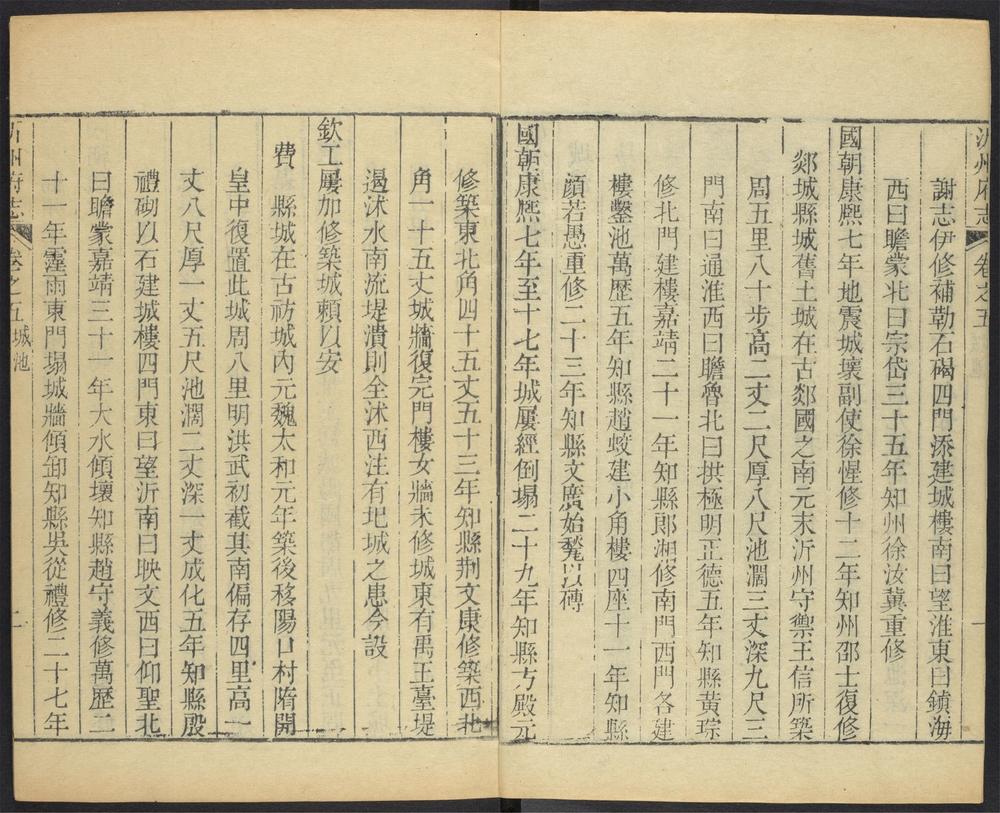 沂州府志 卷之五 一
謝志伊修補勒石碣四門添建城樓南曰望淮東曰鎮海
西曰瞻蒙北曰宗岱三十五年知州徐汝冀重修
國朝康熙七年地震城壞副使徐惺修十二年知州邵士復修
郯城縣城舊土城在古郯國之南元末沂州守禦王信所築
周五里八十步高二丈二尺厚八尺池濶三丈深九尺三
門南曰通淮西曰瞻魯北曰拱極明正德五年知縣黃琮
修北門建樓嘉靖二十一年知縣郎湘修南門西門各建
樓鑿池萬歷五年知縣趙蛟建小角樓四座十一年知縣
顔若愚重修二十三年知縣文廣始甃以磚
國朝康熙七年至十七年城屢經倒塌二十九年知縣方殿元
修築東北角四十五丈五十三年知縣荆文康修築西北
角一十五丈城牆復完門樓女牆未修城東有禹王臺堤
遏沭水南流堤潰則全沭西注有圯城之患今設
欽工屢加修築城賴以安
費 縣城在古祊城內元魏太和元年築後移陽口村隋開
皇中復置此城周八里明洪武初截其南偏存四里高一
丈八尺厚一丈五尺池濶二丈深一丈成化五年知縣殷
禮砌以石建城樓四門東曰望沂南曰映文西曰仰聖北
曰瞻蒙嘉靖三十一年大水傾壞知縣趙守義修萬歷二
十一年霪雨東門塌城牆傾卸知縣吳從禮修二十七年
沂州府志 卷之五 城池 二